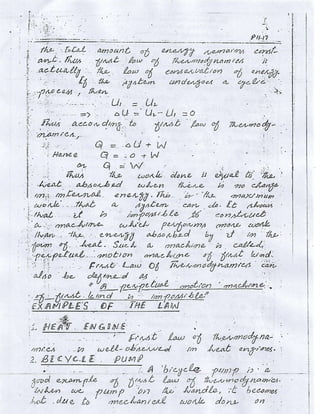 P1417
the total amount of energy remains const
ant. Thus first law of thermodynamics is
actually the law of conservation of energy.
If the system undergoes a cyclic
process, then
U1 = U2
=> ΔU = U2 - U1 = 0
Thus according to first law of thermody-
namics,
Q = ΔU + W
Hence Q = 0 + W
or Q = W
Thus the work done is equal to the
heat absorbed when there is no change
in internal energy. This is the maximum
work that a system can do. It shows
that it is impossible to construct
a machine which performs more work
than the energy absorbed by it in the
form of heat. Such a machine is called
perpetual motion machine of first kind.
First Law Of Thermodynamics can
also be defined as
"A perpetual motion machine
of first kind is impossible"
EXAMPLES OF THE LAW
1. HEAT ENGINE
First law of thermodyna-
mics is well-observed in heat engines.
2. BICYCLE PUMP
A bicycle pump is a
good example of first law of thermodynamics.
When we pump on the handle, it becomes
hot due to mechanical work done on